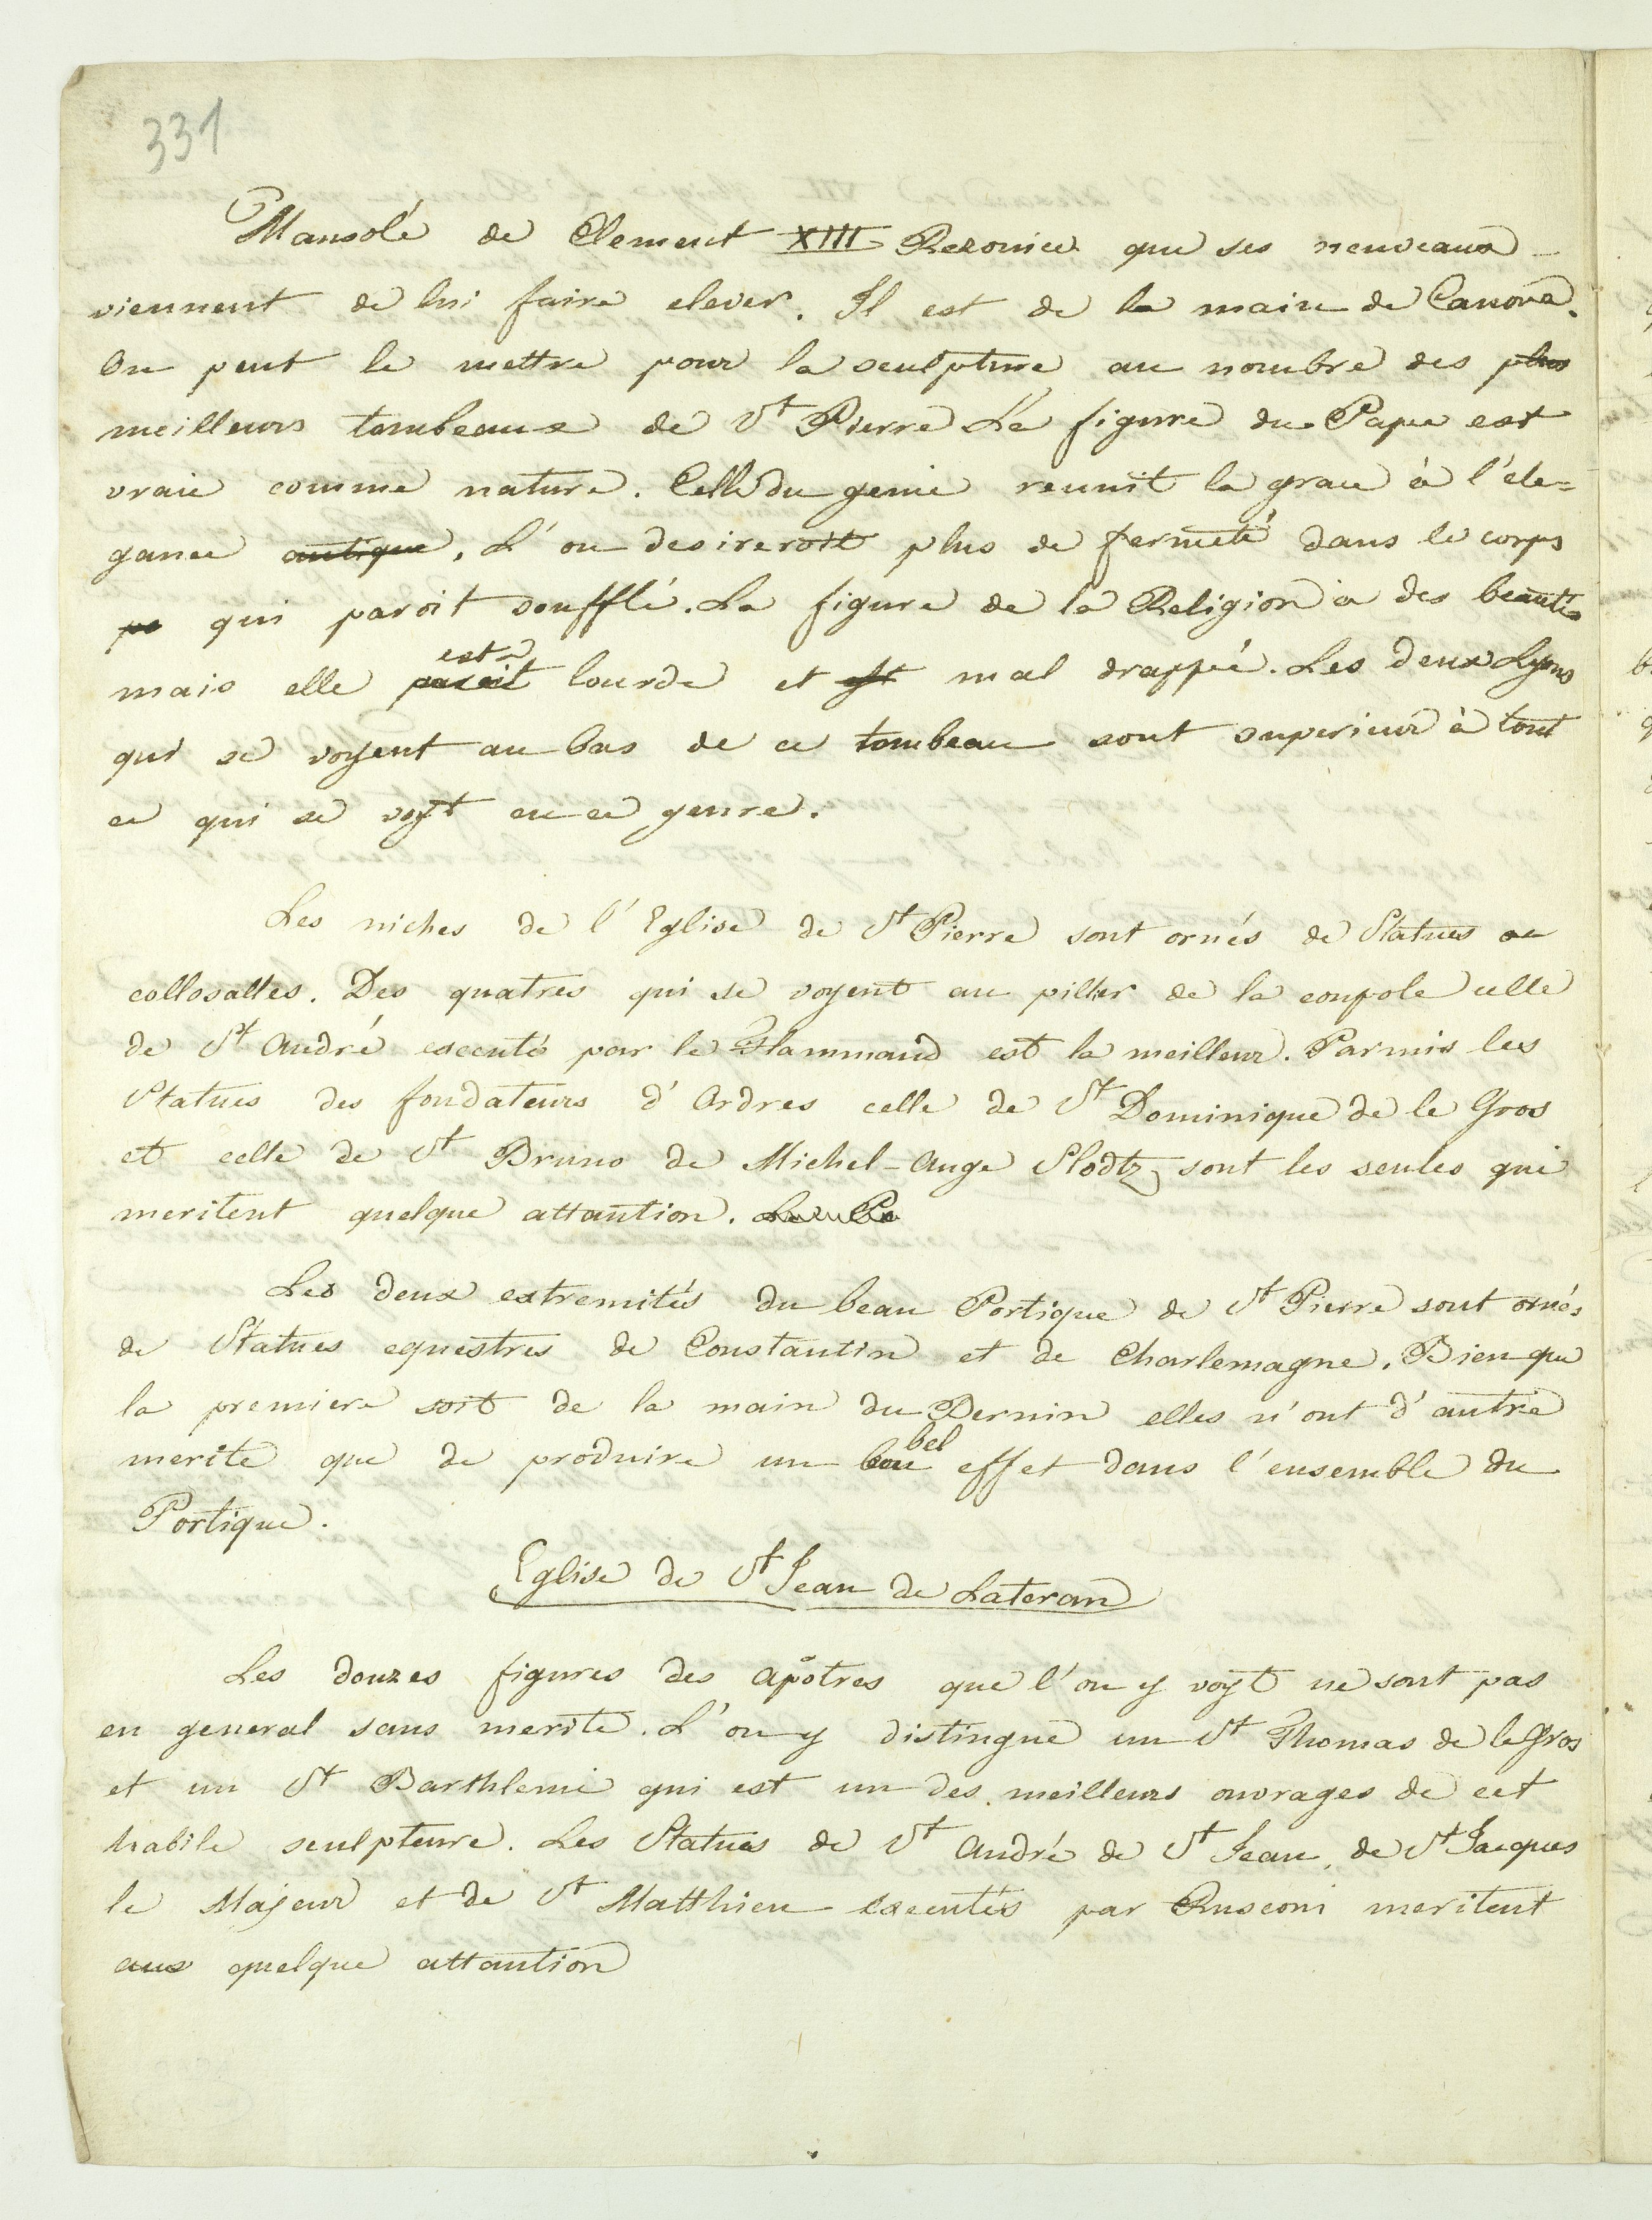 331
Mausolé de Clement XIII Rezonico que ses neuveaux
viennent de lui faire elever. Il est de la main de Canova.
On peut le mettre pour la sculpture au nombre des plus
meilleurs tombeaux de St Pierre La figure du Pape est
vraie comme nature. Celle du genie reunit la grace à l'ele=
gance antique. L'on desireroit plus de fermeté dans le corps
pa qui paroit soufflé. La figure de la Religion a des beautés
est
mais elle paroit lourde et est mal drappée. Les deux Lyons
qui se voyent au bas de ce tombeau sont superieur à tout
ce qui se voyt en ce genre.
Les niches de l'Eglise de St Pierre sont ornés de Statues
collosalles. Des quatres qui se voyent au pilier de la coupole celle
de St André executé par le Flammand est la meilleur. Parmis les
Statues des fondateurs d'Ordres celle de St Dominique de le Gros
et celle de St Bruno de Michel-Ange Slodtz sont les seules qui
meritent quelque attantion.
Les deux extremités du beau Portique de St Pierre sont ornés
de Statues equestres de Constantin et de Charlemagne. Bien que
la premiere soit de la main du Bernin elles n'ont d'autre
bel
merite que de produire un bon effet dans l'ensemble du
Portique.
Eglise de St Jean de Lateran
Les douzes figures des apôtres que l'on y voyt ne sont pas
en general sans merite. L'on y distingue un St Thomas de le Gros
et un St Barthlemi qui est un des meilleurs ouvrages de cet
habile sculpteure. Les Statues de St André de St Jean, de St Jacques
le Majeur et de St Matthieu executés par Rusconi meritent
aus quelque attantion